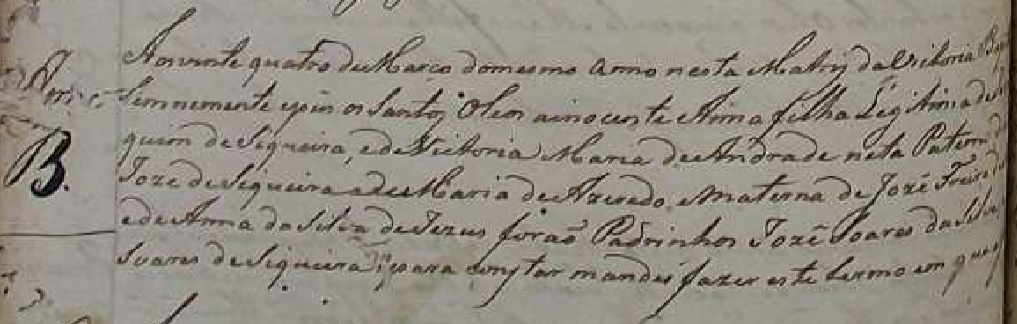 Aos vinte quatro de Marco do mesmo anno nesta Matriz da Victoria
Lemnemente e pus os Santos Oleos a inocente Anna filha Legitima de
quim de Siqueira, e de Victoria Maria de Andrade neta Paterna
B.
Jozé de Siqueira e de Maria de Azevedo, e materna de Jozé Freire
e de Anna da Silva de Jezus forão Padrinhos Jozé Soares da Silva
Soares de Siqueira e para constar mandei fazer este termo em que